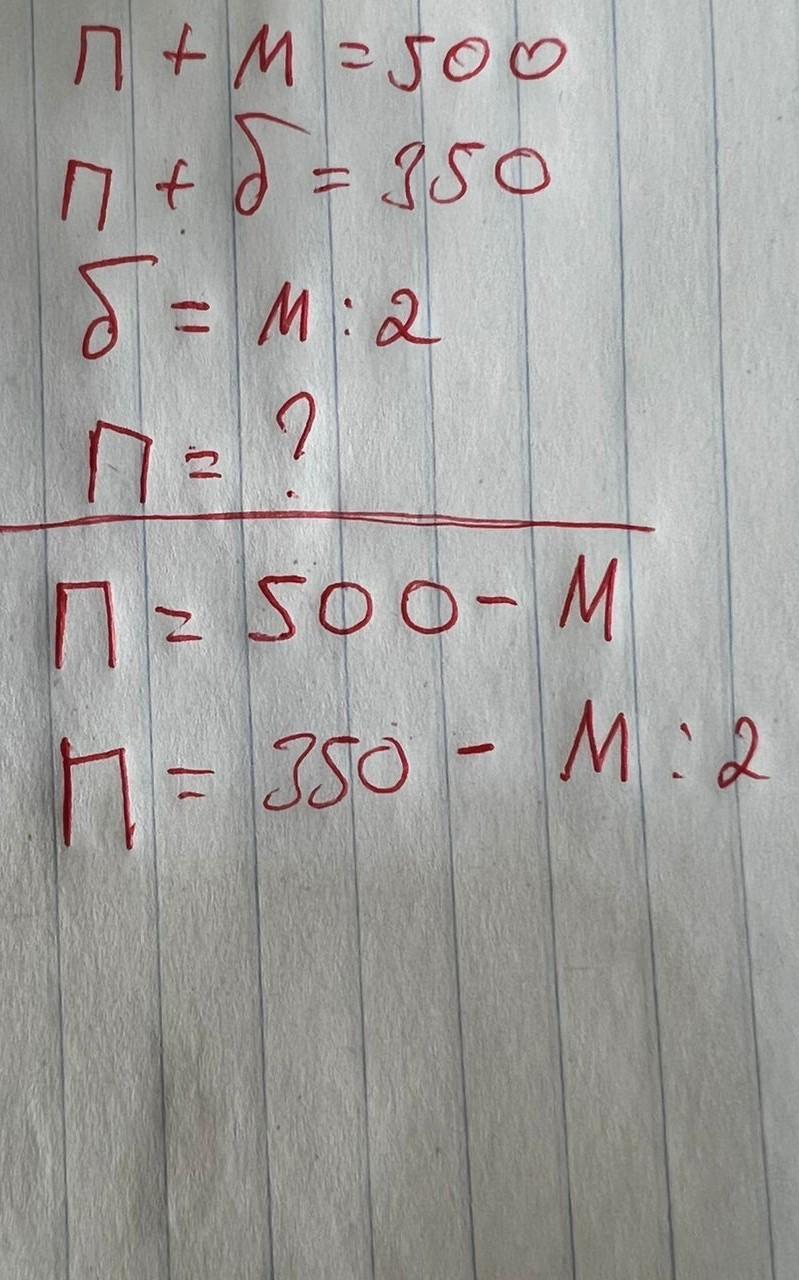 п + м = 500
п + б = 350
б = м : 2
П = ?
П = 500 - М
П = 350 - М : 2